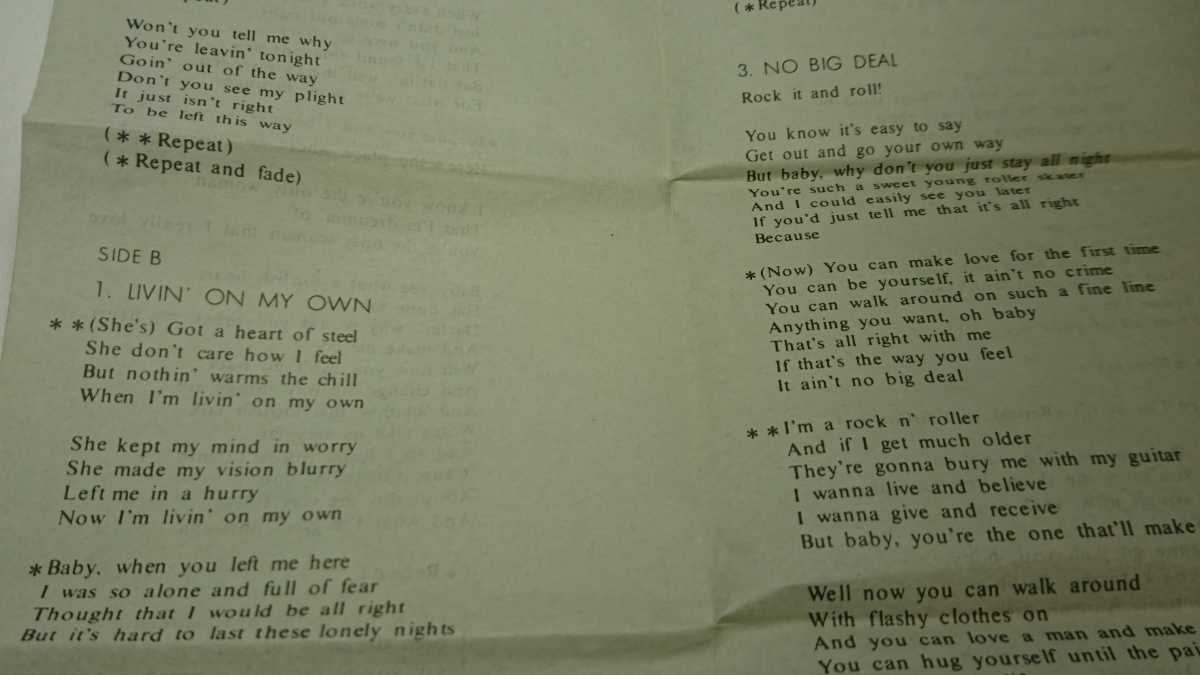 Won't you tell me why
You're leavin' tonight
Goin' out of the way
Don't you see my plight
It just isn't right
To be left this way
(**Repeat)
(*Repeat and fade)
SIDE B
1. LIVIN' ON MY OWN
**(She's) Got a heart of steel
She don't care how I feel
But nothin' warms the chill
When I'm livin' on my own
She kept my mind in worry
She made my vision blurry
Left me in a hurry
Now I'm livin' on my own
*Baby, when you left me here
I was so alone and full of fear
Thought that I would be all right
But it's hard to last these lonely nights
(*Repeat)
3. NO BIG DEAL
Rock it and roll!
You know it's easy to say
Get out and go your own way
But baby, why don't you just stay all night
You're such a sweet young roller skater
And I could easily see you later
If you'd just tell me that it's all right
Because
*(Now) You can make love for the first time
You can be yourself, it ain't no crime
You can walk around on such a fine line
Anything you want, oh baby
That's all right with me
If that's the way you feel
It ain't no big deal
**I'm a rock n' roller
And if I get much older
They're gonna bury me with my guitar
I wanna live and believe
I wanna give and receive
But baby, you're the one that'll make
Well now you can walk around
With flashy clothes on
And you can love a man and make
You can hug yourself until the